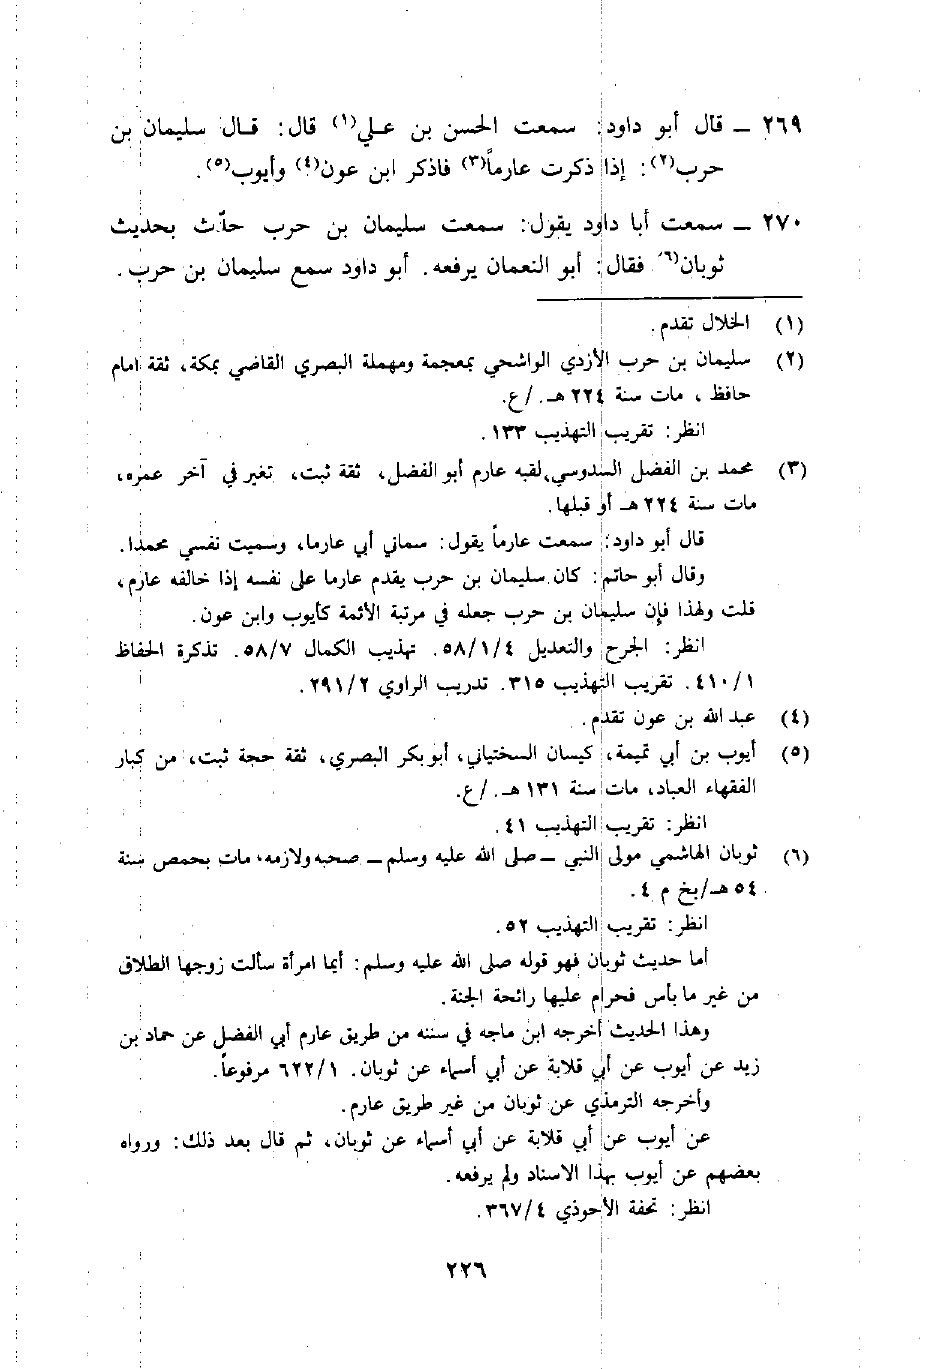 ٢٦٩ ــ قال أبو داود: سمعت الحسن بن عـلي(١) قال: قـال سليمان بن
حرب(٢): إذا ذكرت عارماً(٣) فاذكر ابن عون(٤) وأيوب(٥).
٢٧٠ ــ سمعت أبا داود يقول: سمعت سليمان بن حرب حدّث بحديث
ثوبان(٦) فقال: أبو النعمان يرفعه. أبو داود سمع سليمان بن حرب.
(١) الخلال تقدم.
(٢) سليمان بن حرب الأزدي الواشحي بمعجمة ومهملة البصري القاضي بمكة، ثقة امام
حافظ، مات سنة ٢٢٤ هـ. /ع.
انظر: تقريب التهذيب ١٣٣.
(٣) محمد بن الفضل السدوسي، لقبه عارم أبو الفضل، ثقة ثبت، تغير في آخر عمره،
مات سنة ٢٢٤ هـ أو قبلها.
قال أبو داود: سمعت عارماً يقول: سماني أبي عارما، وسميت نفسي محمدا.
وقال أبو حاتم: كان سليمان بن حرب يقدم عارما على نفسه إذا خالفه عارم،
قلت ولهذا فإن سليمان بن حرب جعله في مرتبة الأئمة كأيوب وابن عون.
انظر: الجرح والتعديل ٥٨/١/٤. تهذيب الكمال ٥٨/٧. تذكرة الحفاظ
٤١٠/١. تقريب التهذيب ٣١٥. تدريب الراوي ٢٩١/٢.
(٤) عبد الله بن عون تقدم.
(٥) أيوب بن أبي تميمة، كيسان السختياني، أبو بكر البصري، ثقة حجة ثبت، من كبار
الفقهاء العباد، مات سنة ١٣١ هـ. /ع.
انظر: تقريب التهذيب ٤١.
(٦) ثوبان الهاشمي مولى النبي ــ صلى الله عليه وسلم ــ صحبه ولازمه، مات بحمص سنة
٥٤ هـ/بخ م ٤.
انظر: تقريب التهذيب ٥٢.
أما حديث ثوبان فهو قوله صلى الله عليه وسلم: أيما امرأة سألت زوجها الطلاق
من غير ما بأس فحرام عليها رائحة الجنة.
وهذا الحديث أخرجه ابن ماجه في سننه من طريق عارم أبي الفضل عن حماد بن
زيد عن أيوب عن أبي قلابة عن أبي أسماء عن ثوبان. ٦٢٢/١ مرفوعاً.
وأخرجه الترمذي عن ثوبان من غير طريق عارم.
عن أيوب عن أبي قلابة عن أبي أسماء عن ثوبان، ثم قال بعد ذلك: ورواه
بعضهم عن أيوب بهذا الاسناد ولم يرفعه.
انظر: تحفة الأحوذي ٣٦٧/٤.
٢٢٦